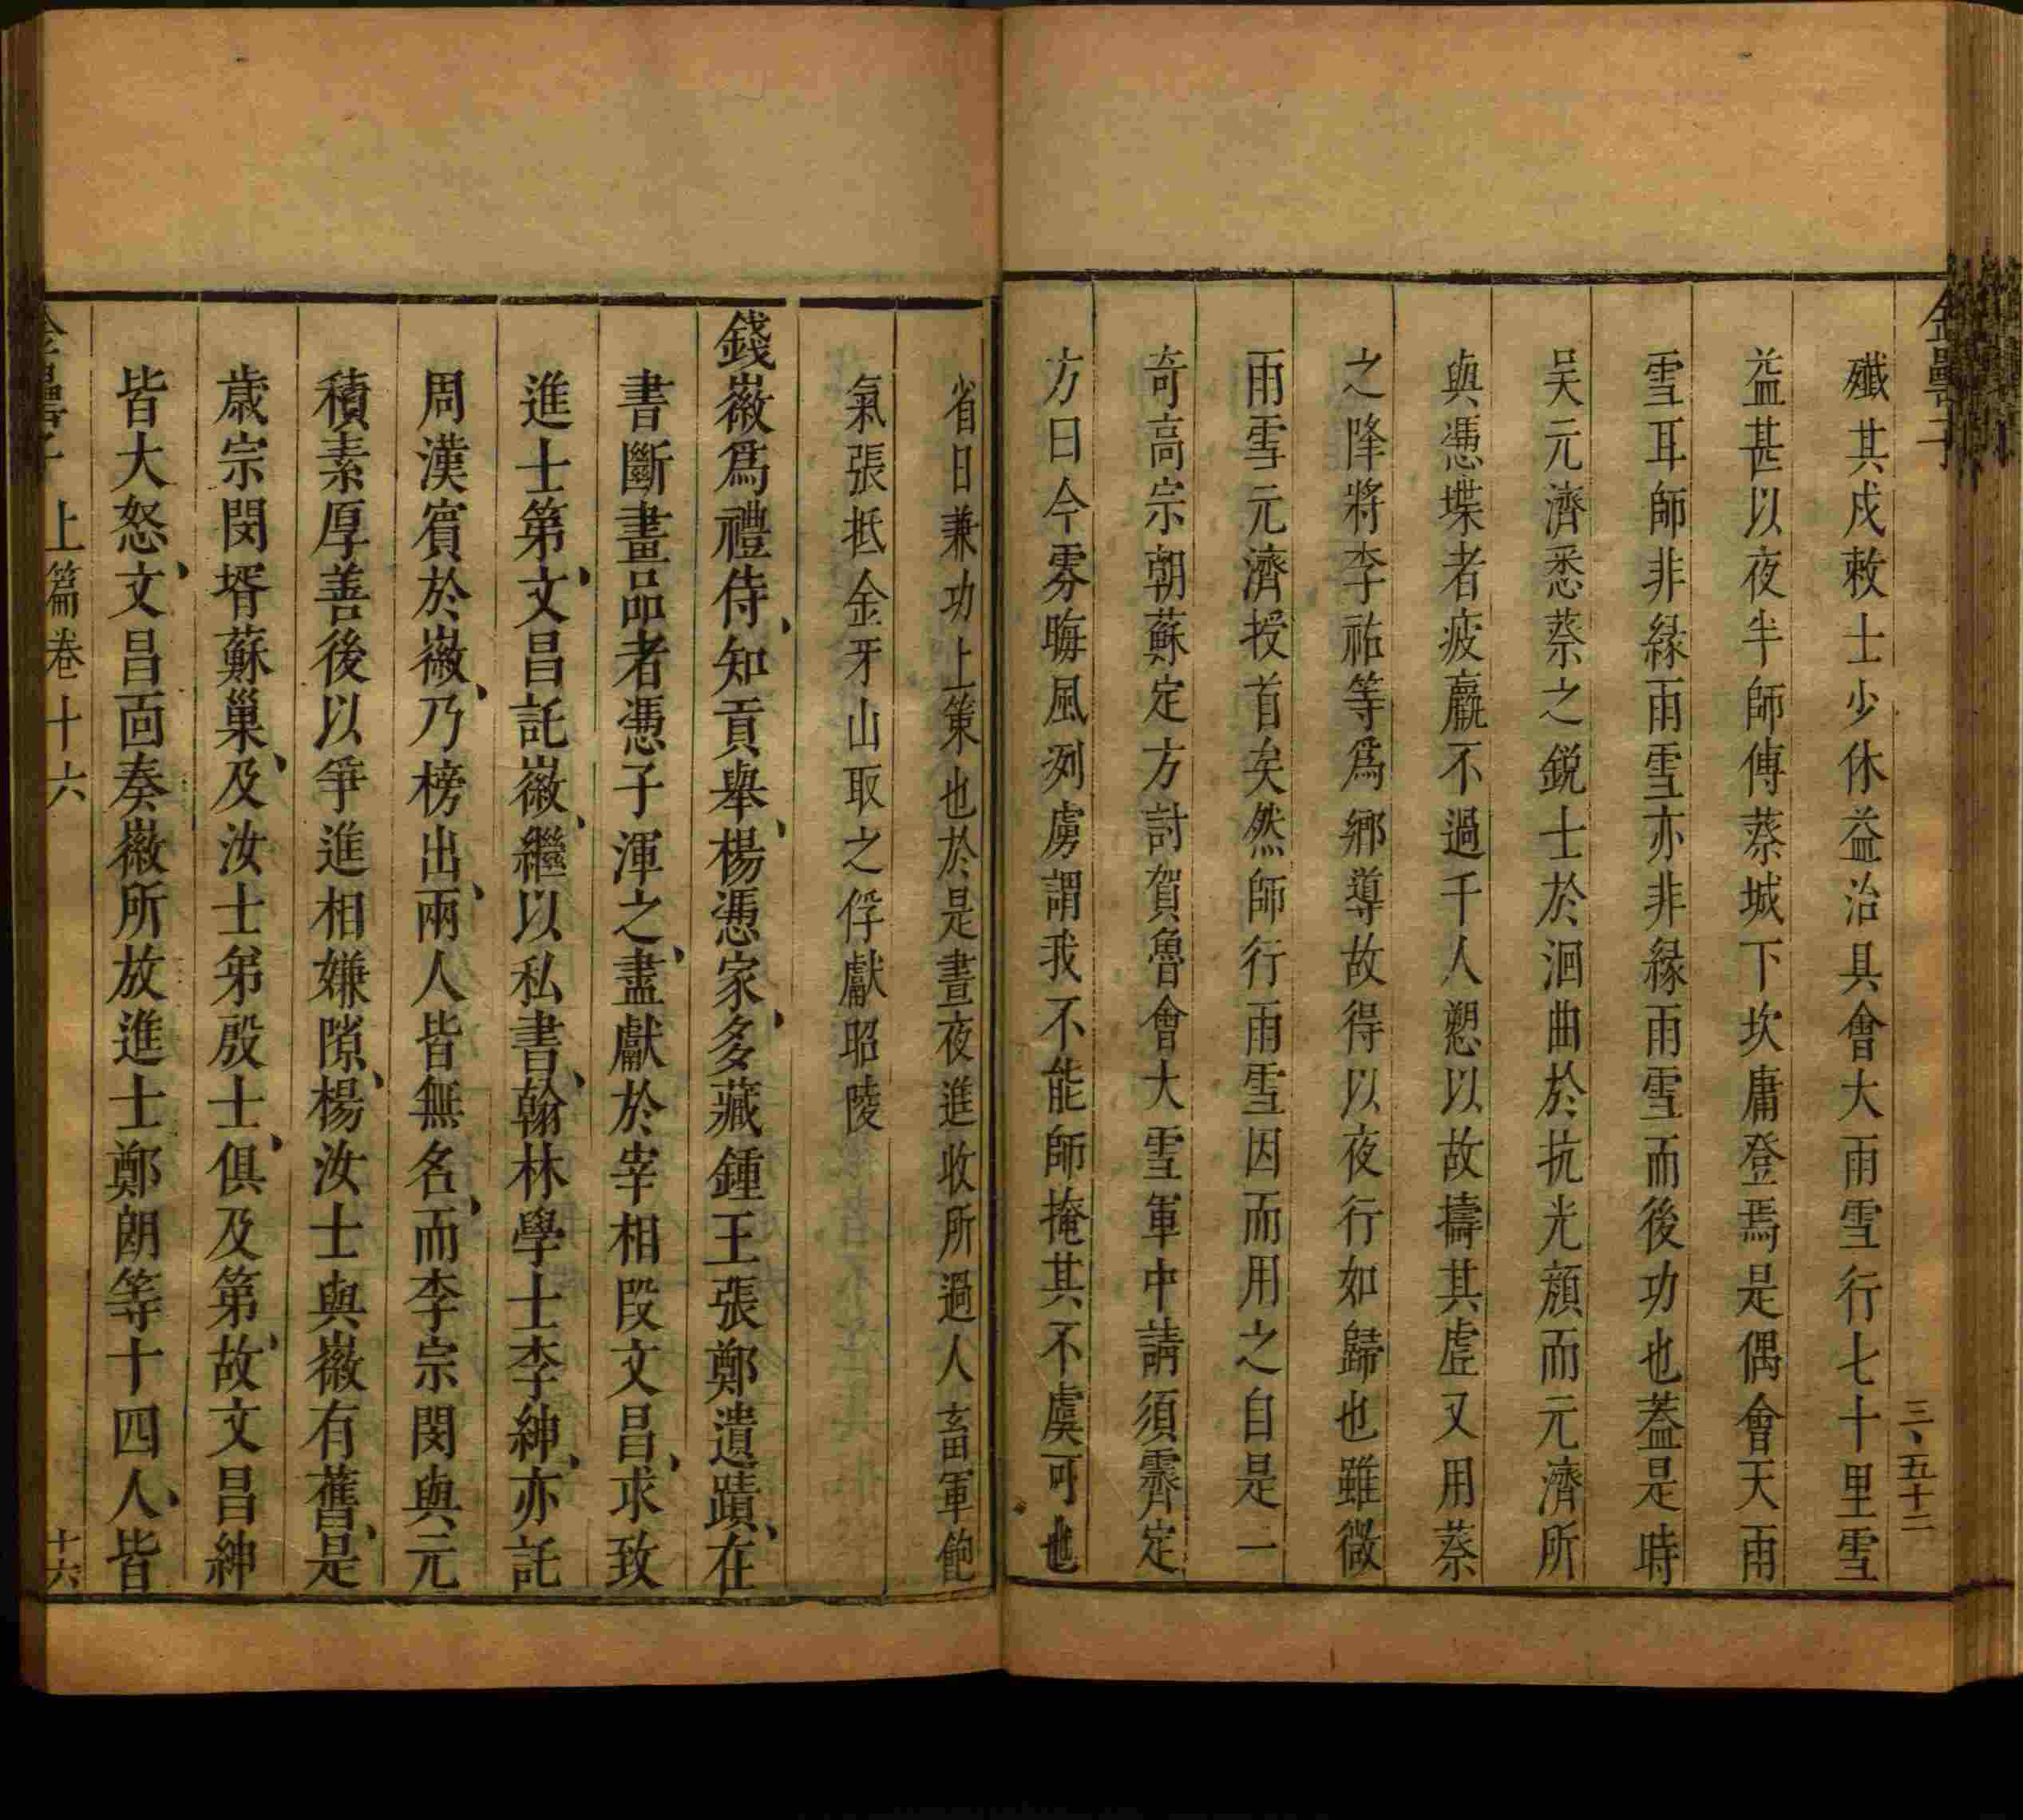 金罍子
三、五十二
殲其戍敕士少休益治具會大雨雪行七十里雪
益甚以夜半師傅蔡城下坎庸登焉是偶會天雨
雪耳師非緣雨雪亦非緣雨雪而後功也葢是時
吴元濟悉蔡之銳士於洄曲於抗光顔而元濟所
與憑堞者疲羸不過千人愬以故擣其虗又用蔡
之降將李祐等爲鄉導故得以夜行如歸也雖微
雨雪元濟授首矣然師行雨雪因而用之自是一
奇高宗朝蘇定方討賀魯會大雪軍中請須霽定
方曰今雾晦風冽虜謂我不能師掩其不虞可也
省日兼功上策也於是晝夜進收所過人畜軍飽
氣張抵金牙山取之俘獻昭陵
錢徽爲禮侍知貢舉楊憑家多藏鍾王張鄭遺蹟在
書斷畫品者憑子渾之盡獻於宰相段文昌求致
進士第文昌託徽繼以私書翰林學士李紳亦託
周漢賓於徽乃榜出兩人皆無名而李宗閔與元
積素厚善後以爭進相嫌隙楊汝士與徽有舊是
歲宗閔壻蘇巢及汝士弟殷士俱及第故文昌紳
皆大怒文昌面奏徽所放進士鄭朗等十四人皆
金罍子 上篇卷十六 十六